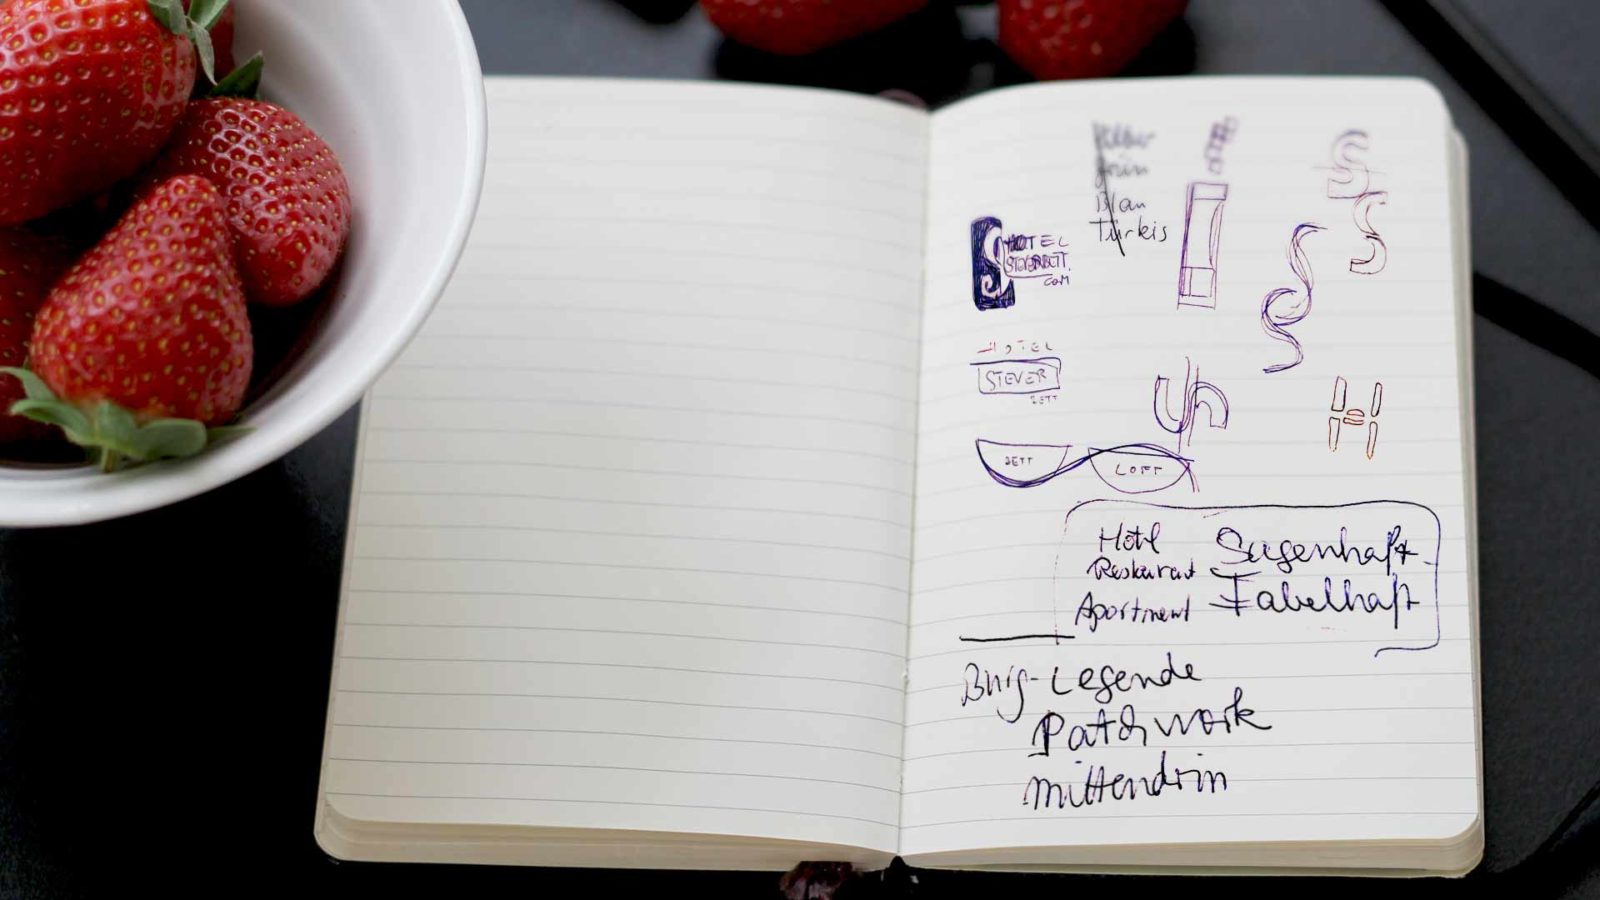 Grün
Blau
Türkis
HOTEL
STEVERBETT
COM
HOTEL
STEVER
BETT
BETT
LOFT
H
Hotel
Restaurant
Apartment
Sagenhaft
Fabelhaft
Burg-Legende
Patchwork
mittendrin